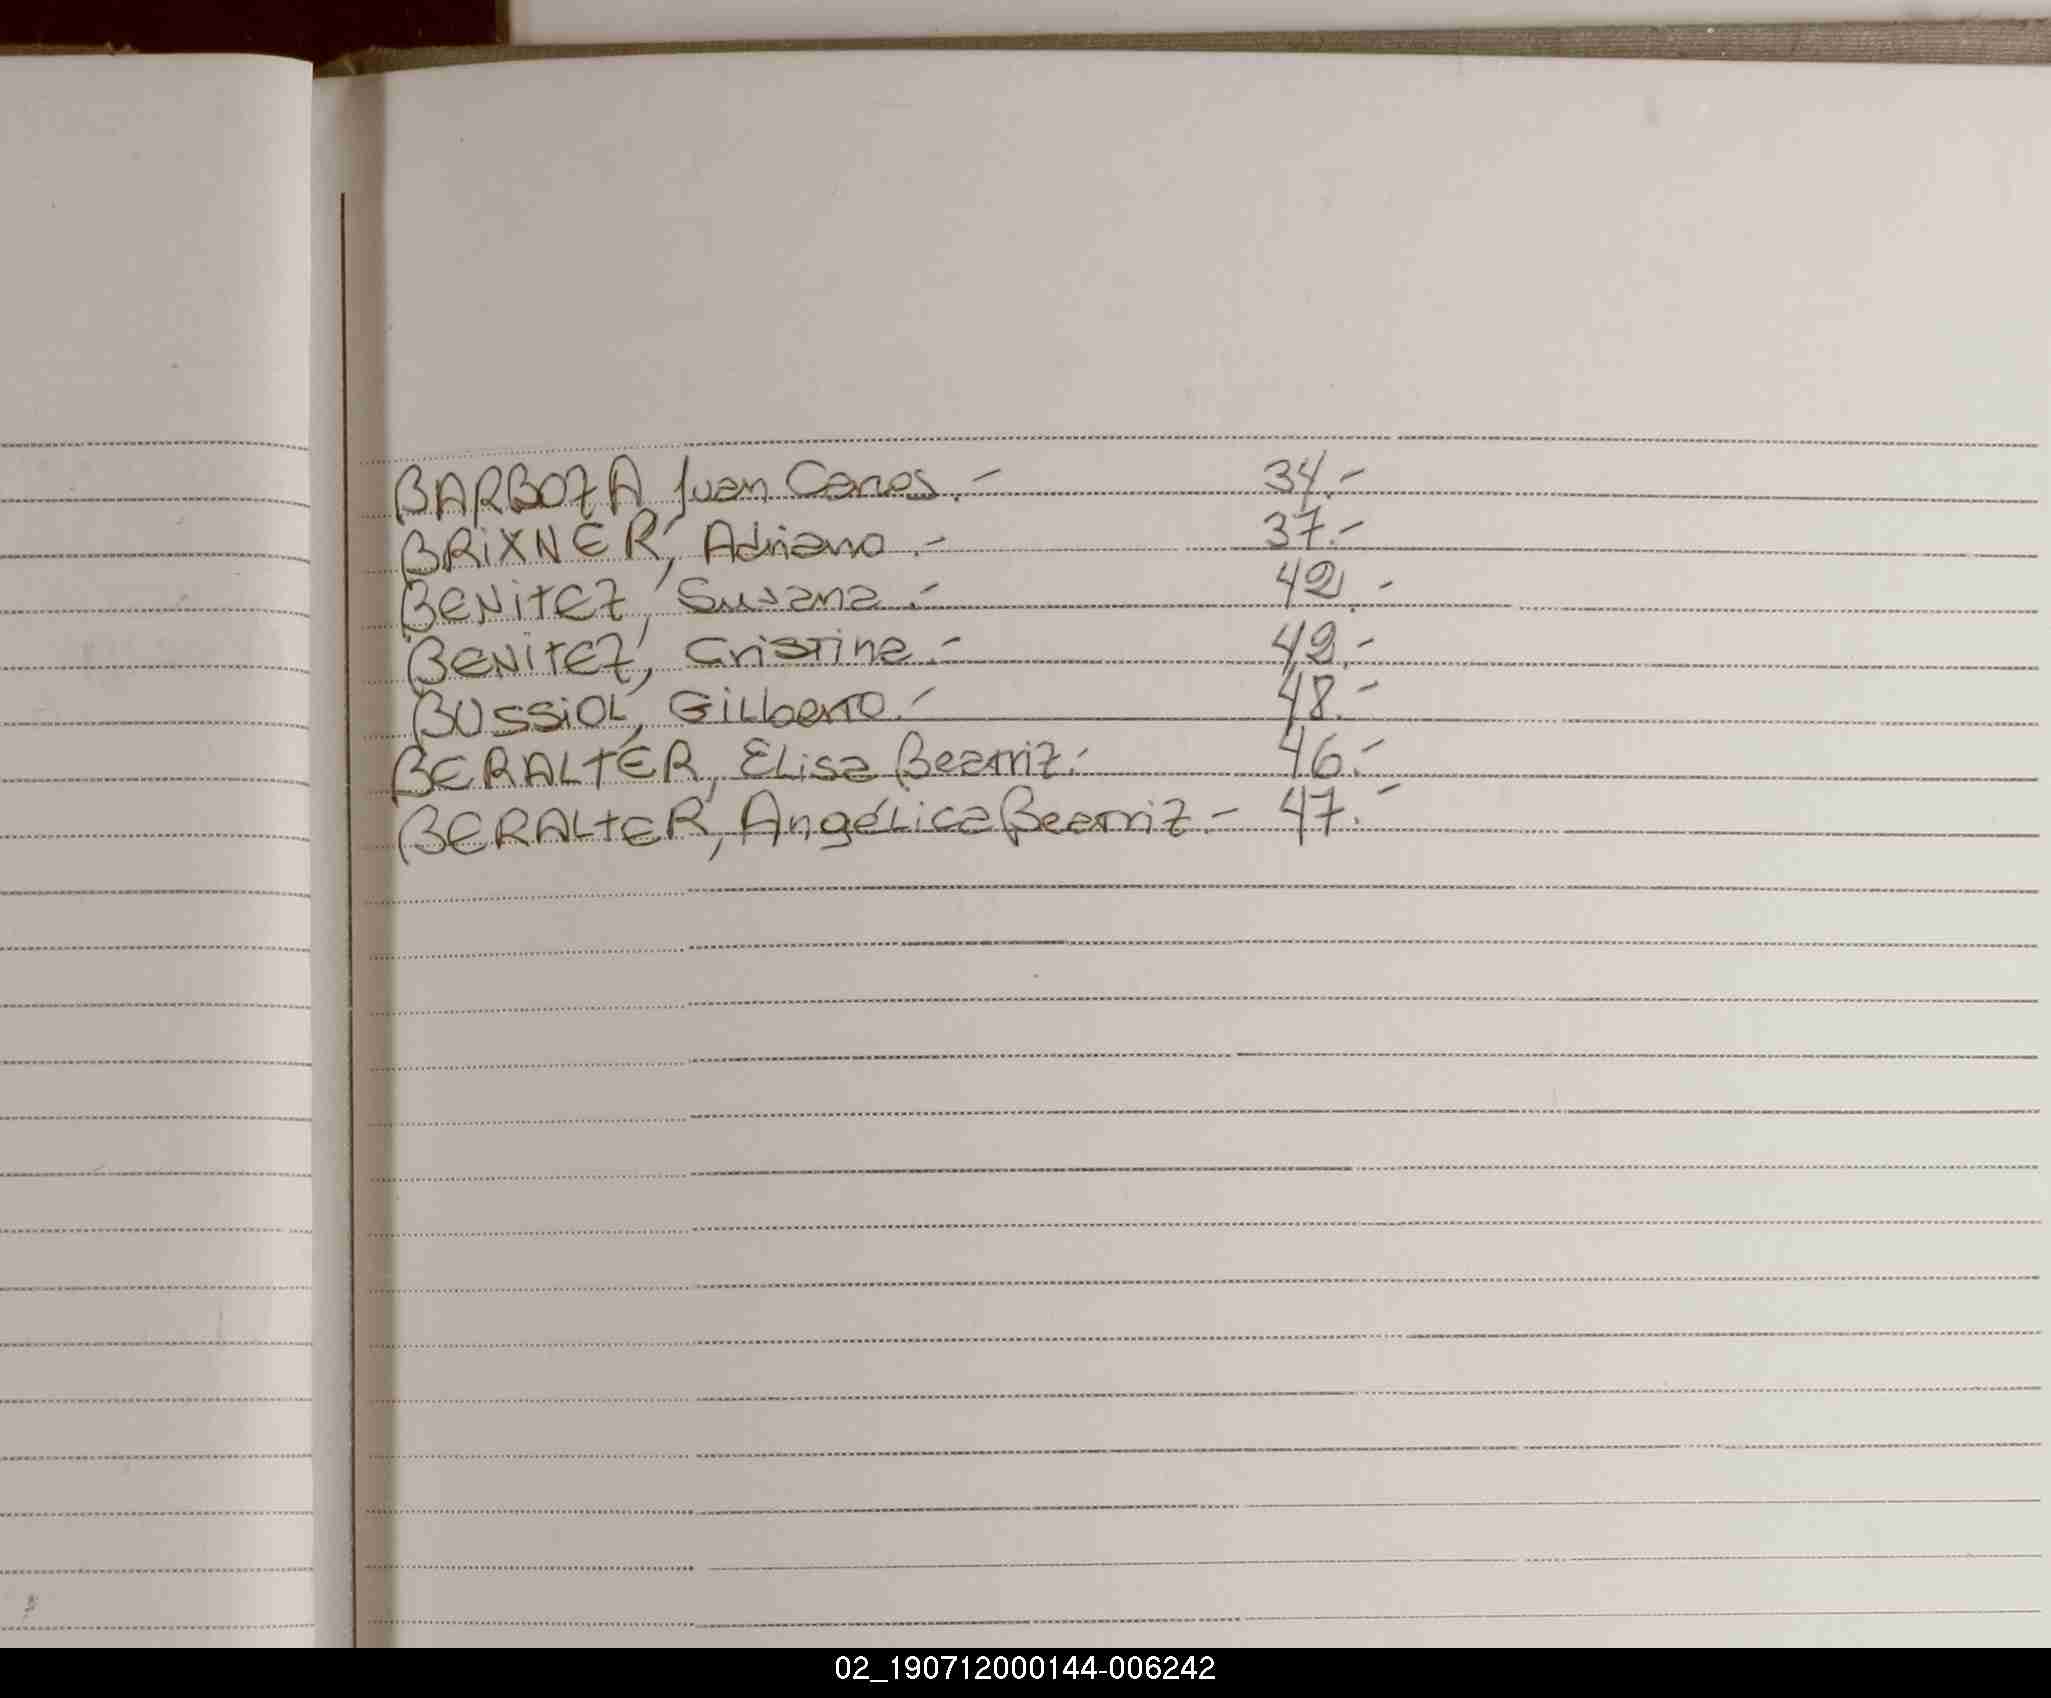 BARBOZA Juan Carlos.- 34.-
BRIXNER, Adriano.- 37.-
BENITEZ, Susana.- 42.-
BENITEZ, Cristina.- 42.-
BUSSIOL, Gilberto.- 48.-
BERALTER, Elisa Beatriz.- 46.-
BERALTER, Angélica Beatriz.- 47.-
02_190712000144-006242